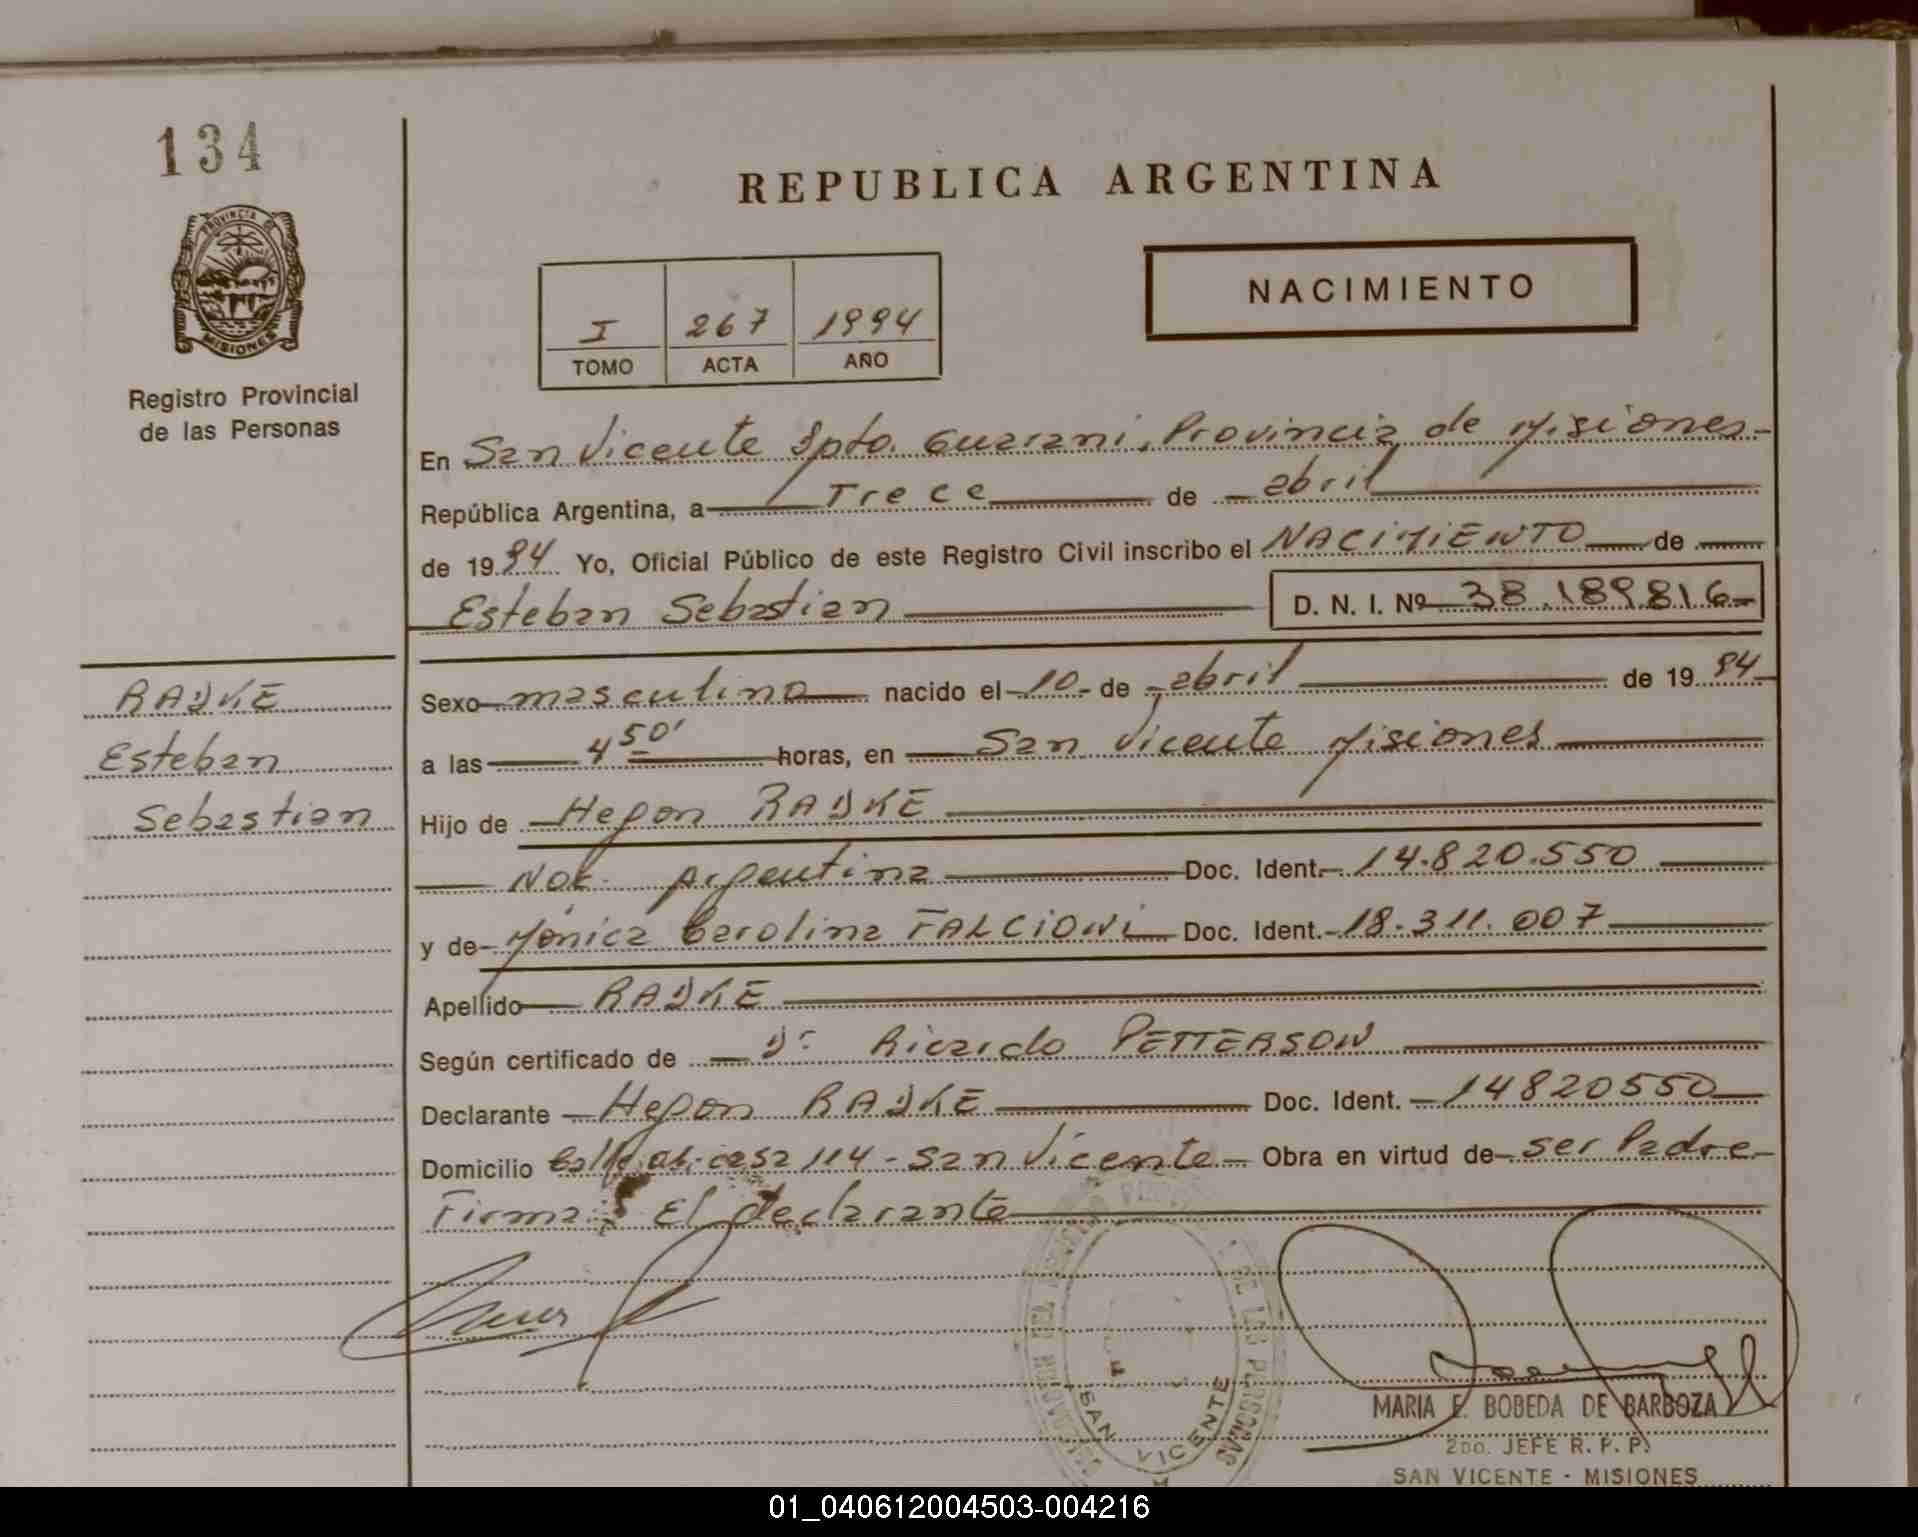 134
PROVINCIA DE
MISIONES
Registro Provincial
de las Personas
REPUBLICA ARGENTINA
I 267 1994
TOMO ACTA AÑO
NACIMIENTO
En San Vicente Dpto. Guarani, Provincia de Misiones
República Argentina, a Trece de abril
de 1994 Yo, Oficial Público de este Registro Civil inscribo el NACIMIENTO de
Esteban Sebastian D. N. I. Nº 38.189.816
RADKE
Esteban
Sebastian
Sexo masculino nacido el 10 de abril de 1994
a las 4 50' horas, en San Vicente Misiones
Hijo de Hegon RADKE
Nac. Argentina Doc. Ident. 14.820.550
y de Mónica Carolina FALCIONI Doc. Ident. 18.311.007
Apellido RADKE
Según certificado de Dr Ricardo PETTERSON
Declarante Hegon RADKE Doc. Ident. 14820550
Domicilio casa 114 - San Vicente Obra en virtud de ser Padre
Firma: El declarante
DE LAS PERSONAS
SAN VICENTE
MARIA E. BOBEDA DE BARBOZA
2DO. JEFE R. P. P.
SAN VICENTE - MISIONES
01_040612004503-004216